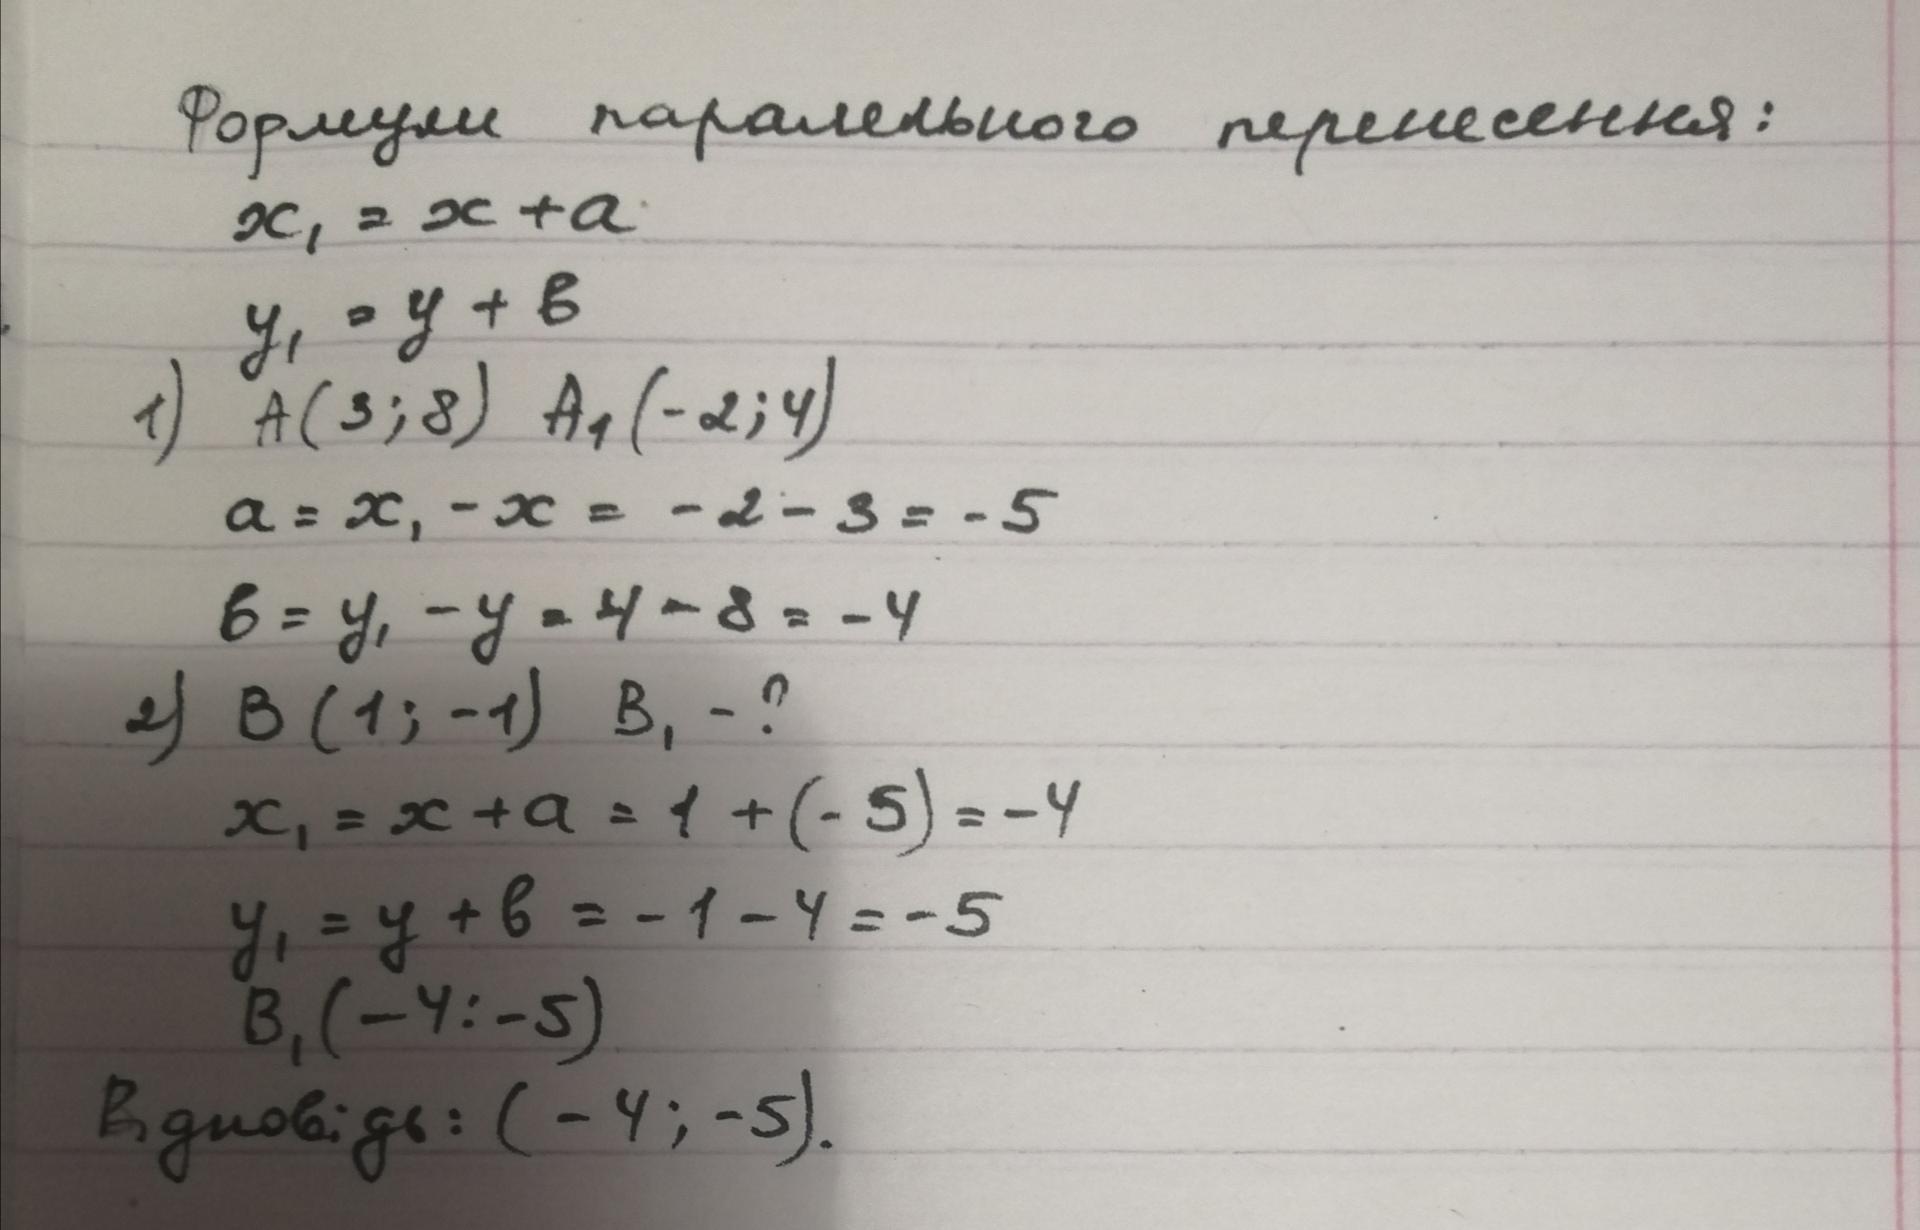 Формули паралельного перенесення:
x₁ = x + a
y₁ = y + в
1) A(3;8) A₁(-2;4)
a = x₁ - x = -2 - 3 = -5
в = y₁ - y = 4 - 8 = -4
2) B(1;-1) B₁ - ?
x₁ = x + a = 1 + (-5) = -4
y₁ = y + в = -1 - 4 = -5
B₁(-4:-5)
Відповідь: (-4;-5).